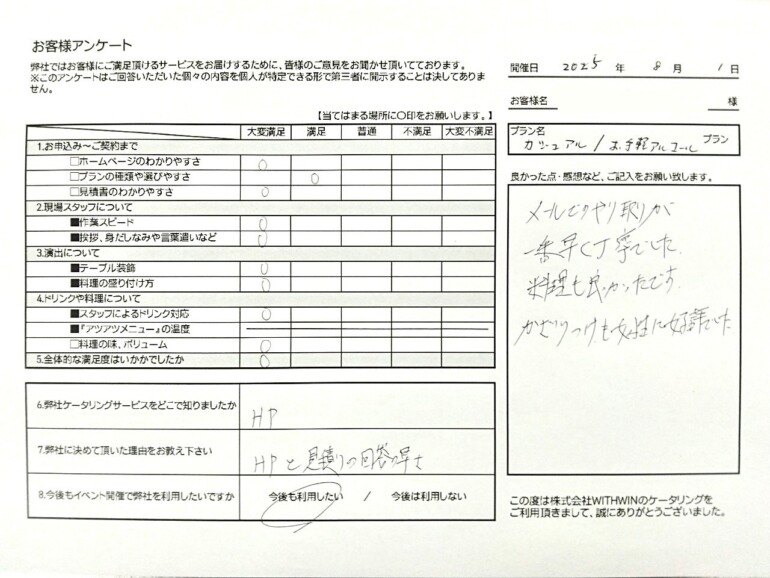 お客様アンケート
弊社ではお客様にご満足頂けるサービスをお届けするために、皆様のご意見をお聞かせ頂いております。
※このアンケートはご回答いただいた個々の内容を個人が特定できる形で第三者に開示することは決してありま
せん。
【当てはまる場所に〇印をお願いします。】
大変満足 満足 普通 不満足 大変不満足
1.お申込み～ご契約まで
□ホームページのわかりやすさ ○
□プランの種類や選びやすさ ○
□見積書のわかりやすさ ○
2.現場スタッフについて
■作業スピード ○
■挨拶、身だしなみや言葉遣いなど ○
3.演出について
■テーブル装飾 ○
■料理の盛り付け方 ○
4.ドリンクや料理について
■スタッフによるドリンク対応 ○
■『アツアツメニュー』の温度
□料理の味、ボリューム ○
5.全体的な満足度はいかかでしたか ○
6.弊社ケータリングサービスをどこで知りましたか HP
7.弊社に決めて頂いた理由をお教え下さい HPと見積りの回答の早さ
8.今後もイベント開催で弊社を利用したいですか 今後も利用したい / 今後は利用しない
開催日 2025 年 8 月 1 日
お客様名 様
プラン名
カジュアル/お手軽アルコール プラン
良かった点・感想など、ご記入をお願い致します。
メールでのやり取りが
一番早く丁寧でした。
料理も良かったです。
かざりつけも女性に好評でした
この度は株式会社WITHWINのケータリングを
ご利用頂きまして、誠にありがとうございました。